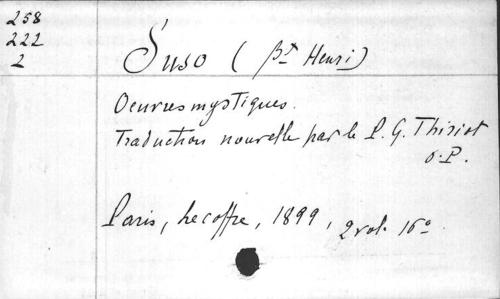 258
222
2
Suso (Bt Henri)
Oeuvres mystiques.
Traduction nouvelle par le P. G. Thiriot
O.P.
Paris, Lecoffre, 1899, 2 vol. 16°.